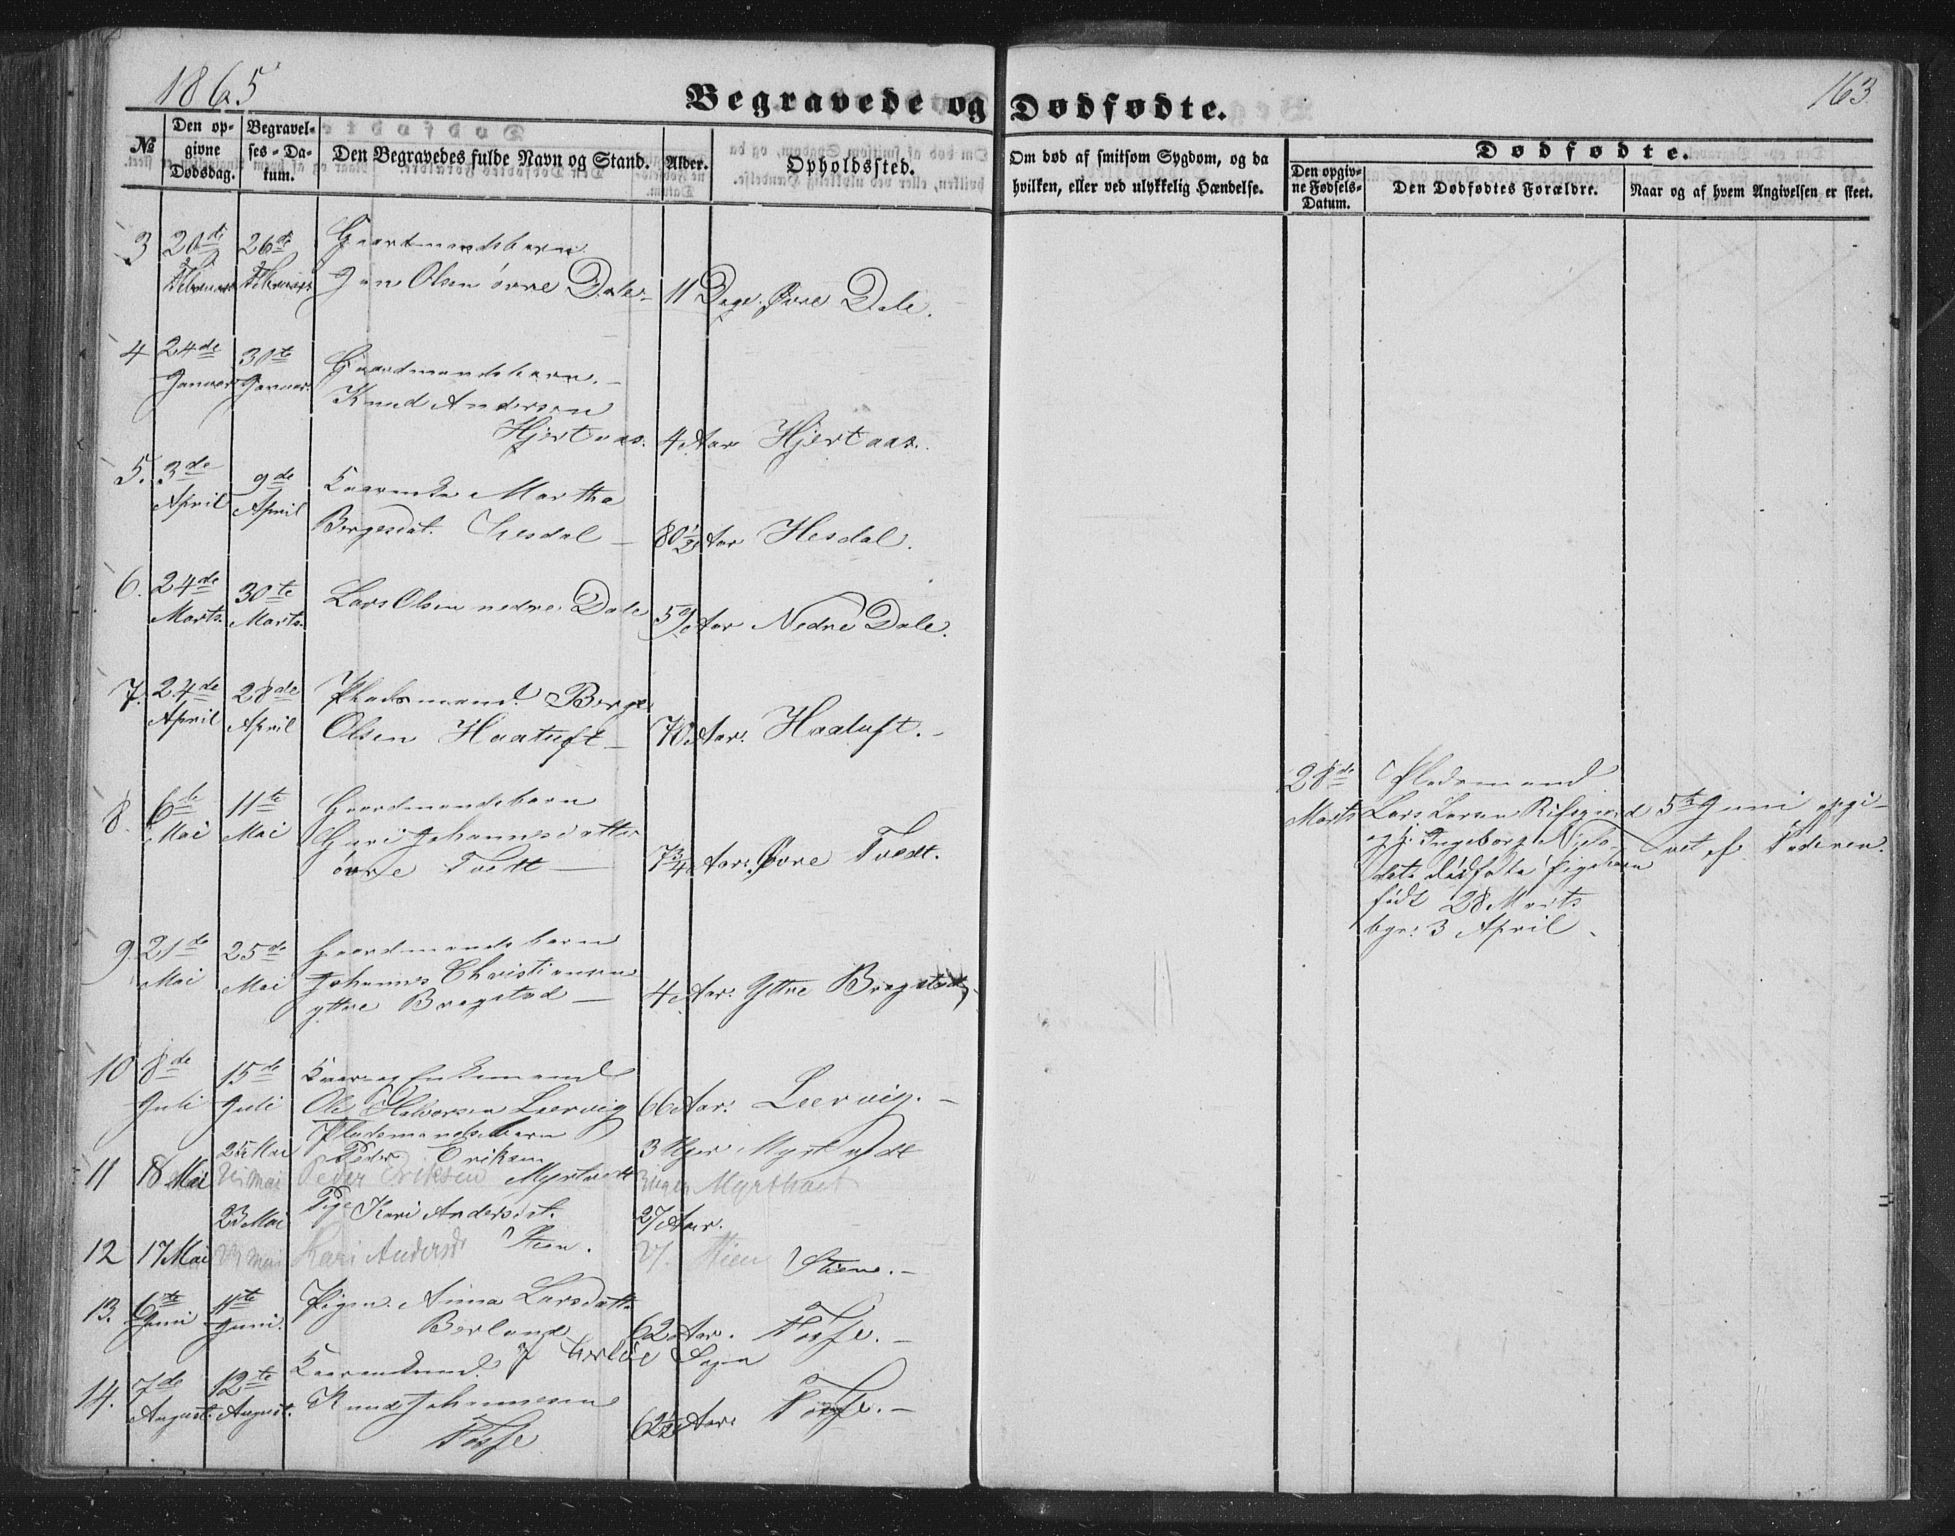 1865
163
Begravede og Dødfødte.
№
Den opgivne Dødsdag.
Begravelses-Dakum.
Den Begravedes fulde Navn og Stand.
Alder.
Opholdssted.
Om død af smitsom Sygdom, og da
hvilken, eller ved ulykkelig Hændelse.
Dødfødte.
Den opgivne Fødsels-Datum.
Den Dødfødtes Forældre.
Naar og af hvem Angivelsen er skeet.
3 20de Februar 26de Februar Gaardmandsbarn
Jon Olsen øvre Dale 11 Dage. Øvre Dale.
4 24de Januar 30te Januar Gaardmandsbarn.
Knud Andersen
Hjertaas. 4 Aar Hjertaas.
5. 3de April 9de April Martha
Bergesdat. Hesdal 80½ Aar Hesdal.
6. 24de Marts 30te Marts Lars Olsen nedre Dale Aar Nedre Dale.
7. 24de April 28de April Pladsmand Berge
Olsen Haatuft 70 Aar. Haatuft.
8. 6de Mai 11te Mai Gaardmandsbarn
Guri Johannesdatter
øvre Tvett 7¾ Aar. Øvre Tvedt.
9. 21de Mai 25de Mai Gaardmandsbarn
Johannes Christiansen
yttre Bragstad 4 Aar. Yttre Bragstad
10 8de Juli 15de Juli Enkemand
Ole Halvorsen Leervig 66 Aar. Leervig.
Pladsmandsbarn
11 18 Mai 25 Mai Peder Eriksen 3 Uger Myrtvedt
25 mai Peder Eriksen Myrtvedt 3 uger Myrthvet
23 Mai Pige Kari Andersdt. 27 Aar.
12 17 Mai 23 mai Kari Andersd Stien. 27. Stien Stiene.
13. 6te Juni 11te Juni. Pigen Anna Larsdatter
Berland 62 Aar. Fosse.
Sogn
14. 7de August. 12te August.
Knud Johannessen 62½ Aar. Fosse.
Fosse
28de Marts
Pladsmand
Lars Larsen
Ingeborg Niels-
dats dødfødte Pigebarn
født 28 Marts
bgr. 3 April
5te Juni opgi-
vet af Faderen.